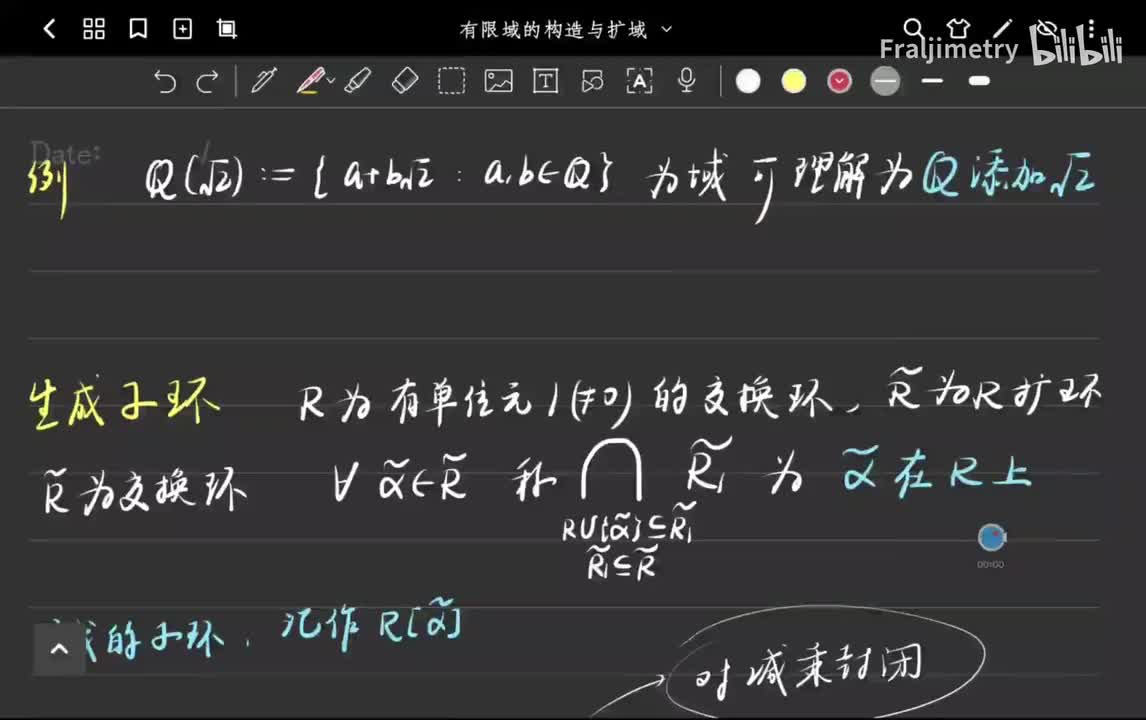 有限域的构造与扩域
Fraljimetry bilibili
Date:
例 Q(√2) := { a+b√2 : a,b∈Q } 为域 可理解为 Q 添加√2
生成子环 R为有单位元1(≠0)的交换环, R̃为R扩环
R̃为交换环 ∀ α̃∈R̃ 称 ⋂ R̃₁ 为 α̃在R上
R∪{α̃}⊆R̃₁
R̃₁⊆R̃
00:00
成的子环, 记作 R[α̃]
对减乘封闭